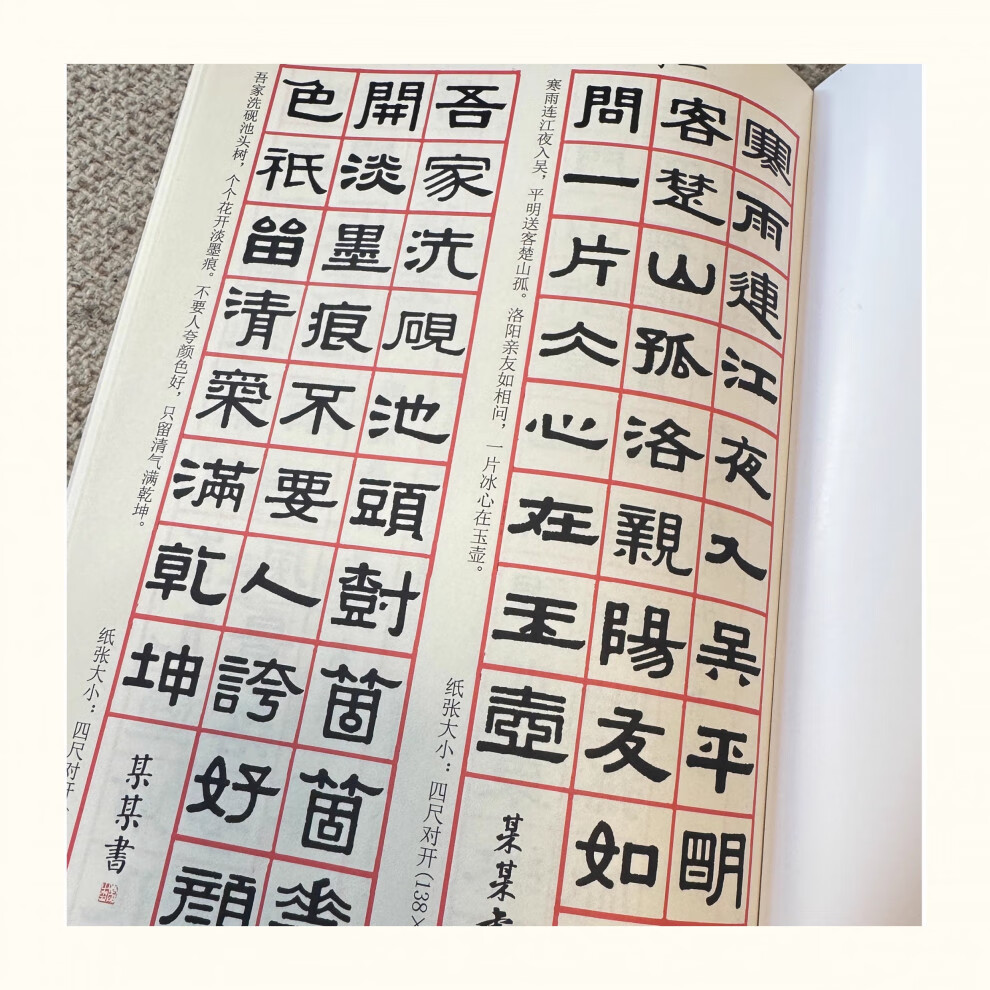 寒雨連江夜入吴平明
客楚山孤洛親陽友如
問一片仌心在玉壺
某某
寒雨连江夜入吴，平明送客楚山孤。洛阳亲友如相问，一片冰心在玉壶。
纸张大小：四尺对开(138×
吾家洗硯池頭尌箇箇
開淡墨痕不要人誇好顔
色祇留清氣滿乾坤
某某書
吾家洗砚池头树，个个花开淡墨痕。不要人夸颜色好，只留清气满乾坤。
纸张大小：四尺对开